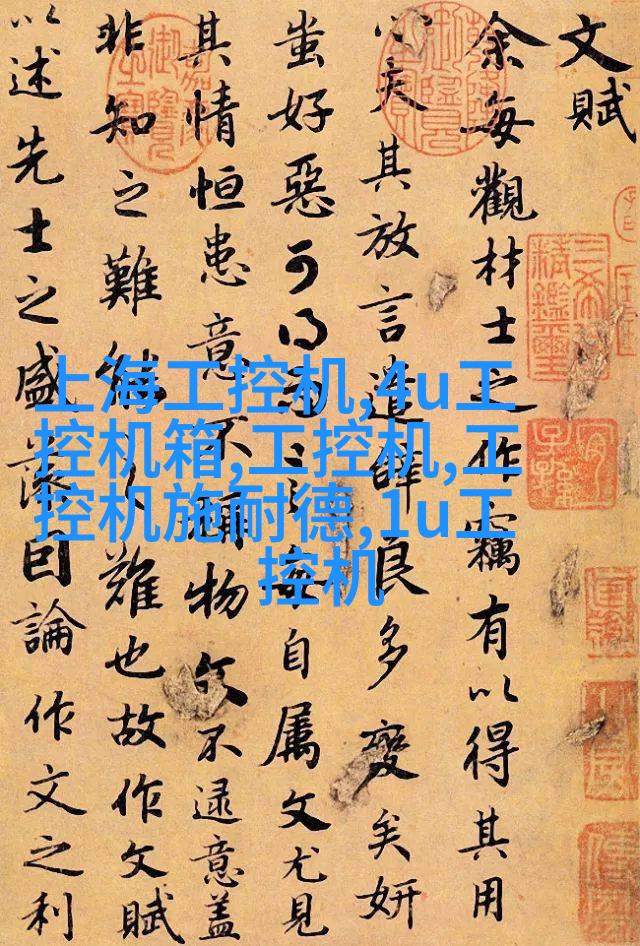 文賦
余每觀材士之作竊有以得其用
心夫其放言遣辭良多變矣妍
蚩好惡可得而言每自属文尤見
其情恒患意不稱物文不逮意盖
非知之難能之難也故作文賦
以述先士之盛藻因論作文之利
上海工控机,4u工
控机箱,工控机,工
控机施耐德,1u工
控机
三希堂精鑑璽
宜子孫